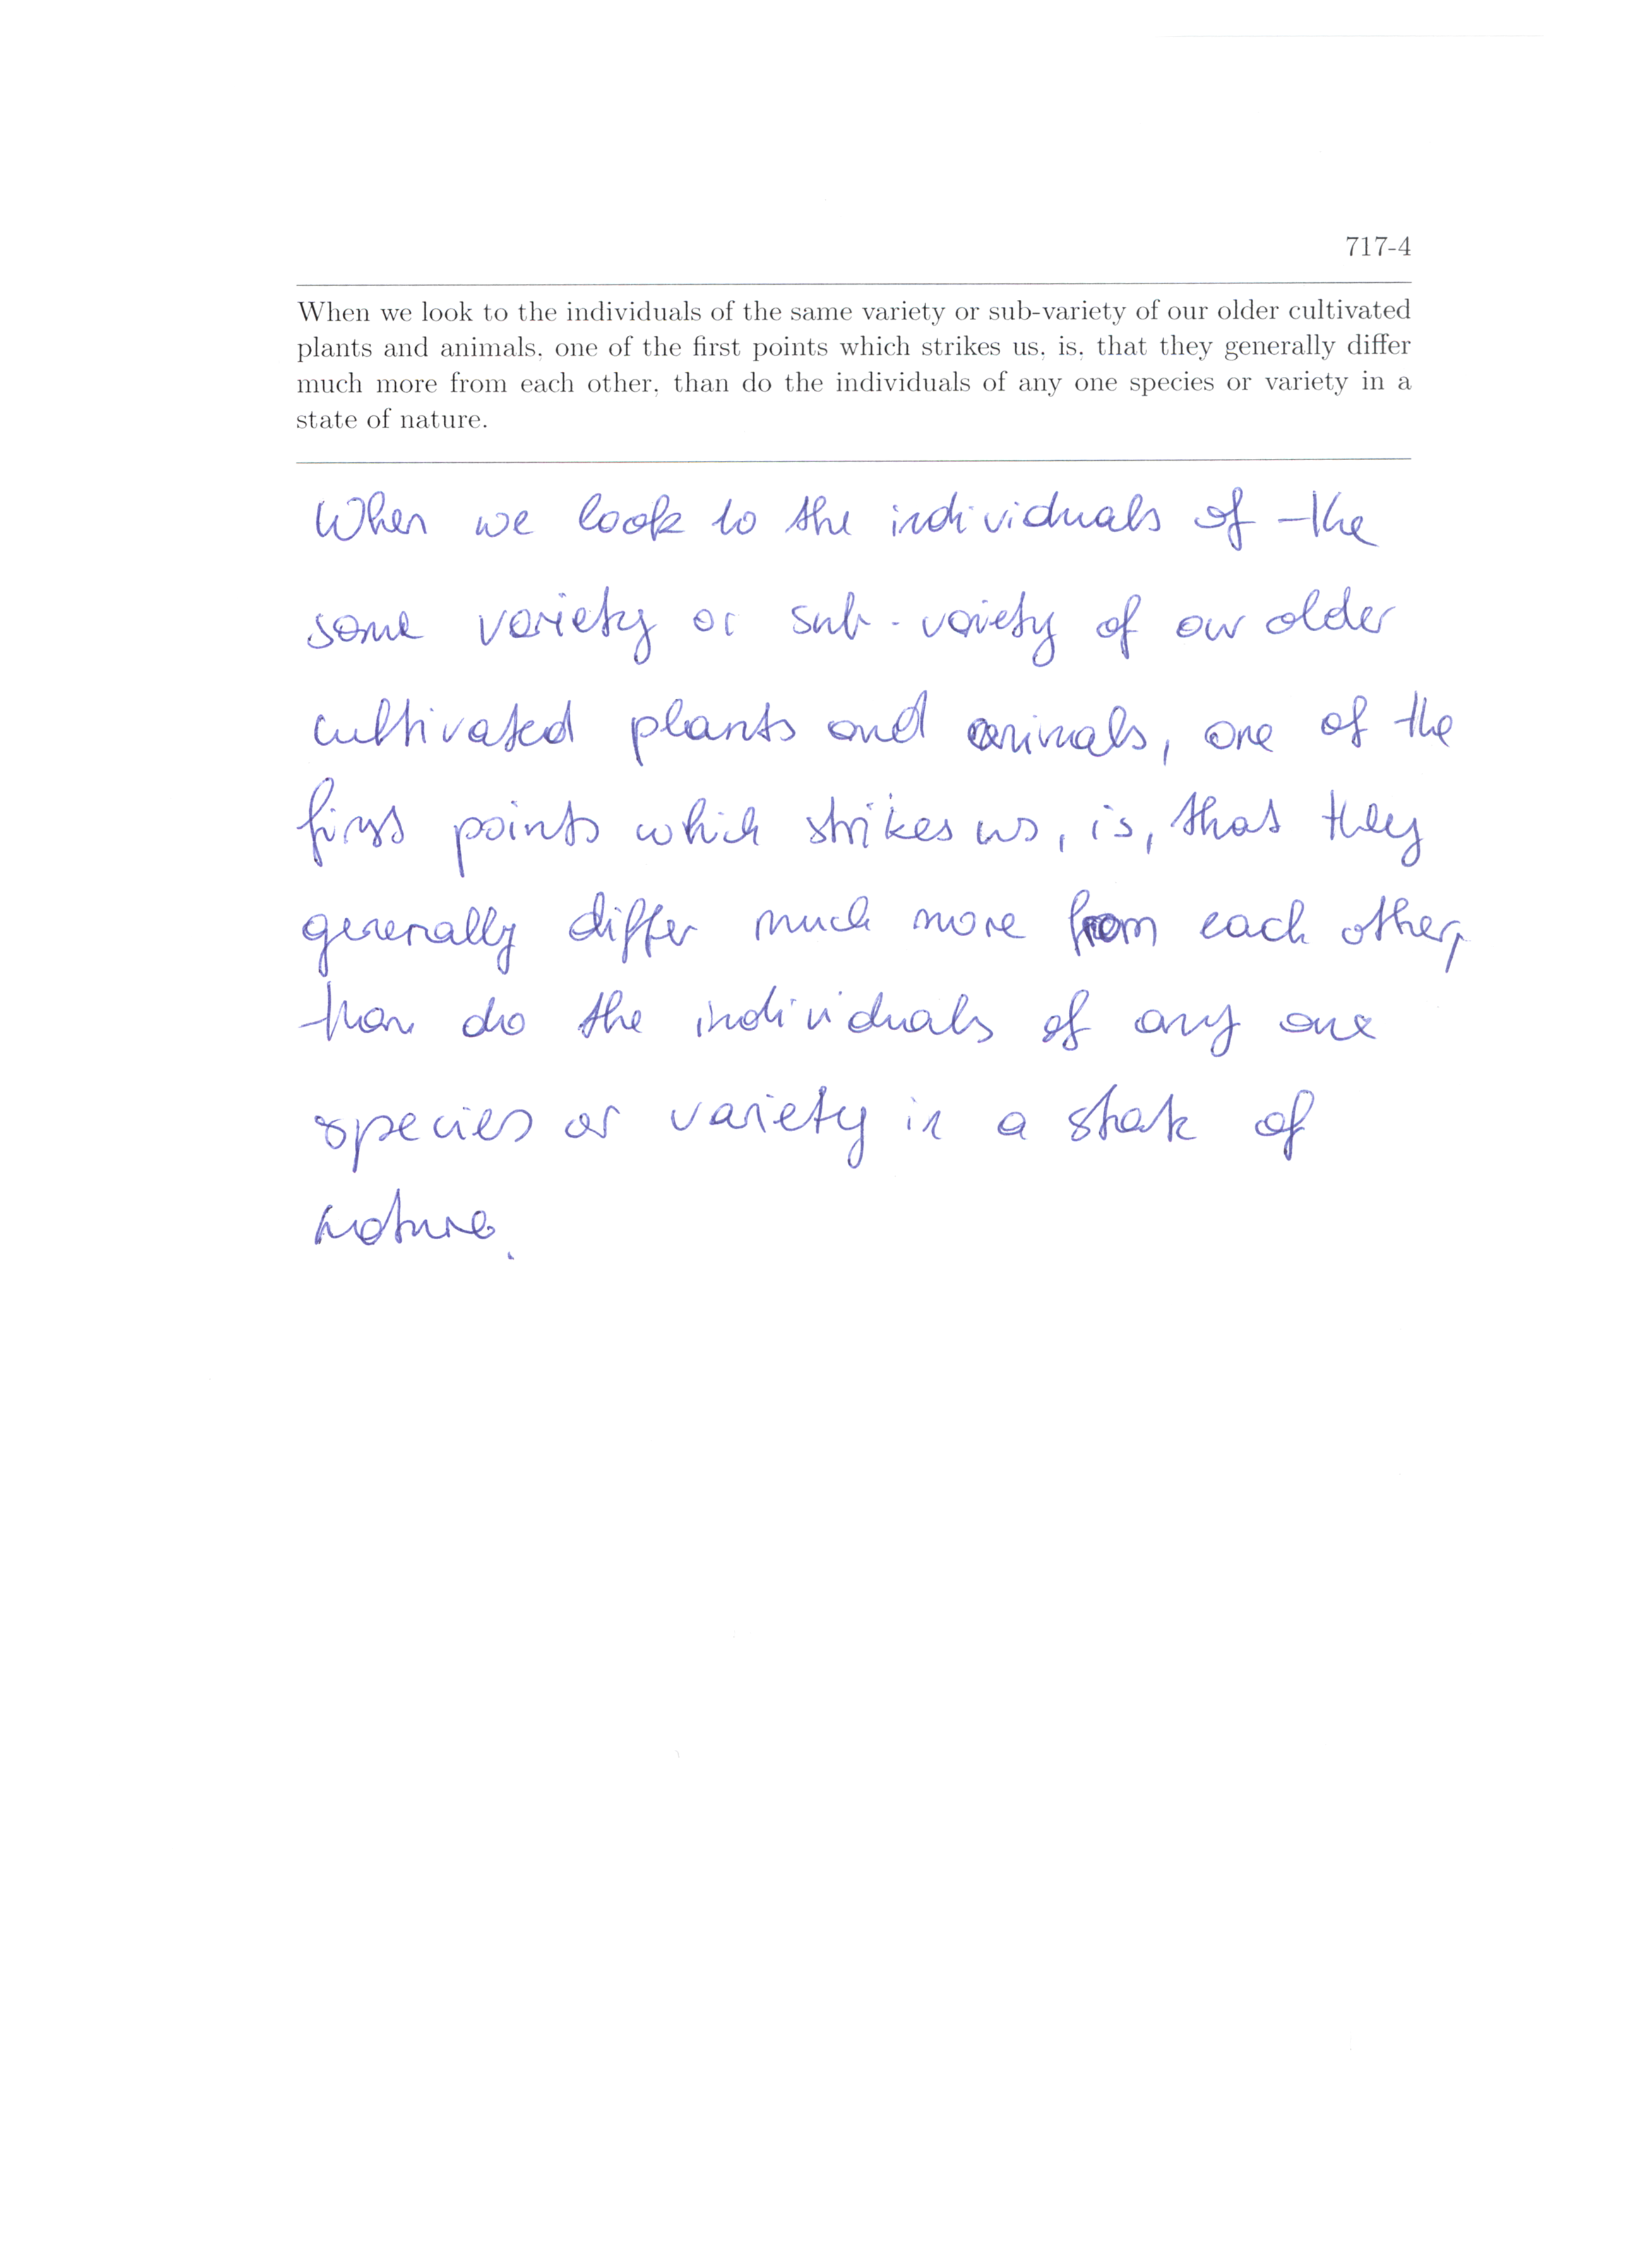 717-4
When we look to the individuals of the same variety or sub-variety of our older cultivated
plants and animals, one of the first points which strikes us, is, that they generally differ
much more from each other, than do the individuals of any one species or variety in a
state of nature.
When we look to the individuals of the
same variety or sub-variety of our older
cultivated plants and animals, one of the
first points which strikes us, is, that they
generally differ much more from each other,
than do the individuals of any one
species or variety in a state of
nature.